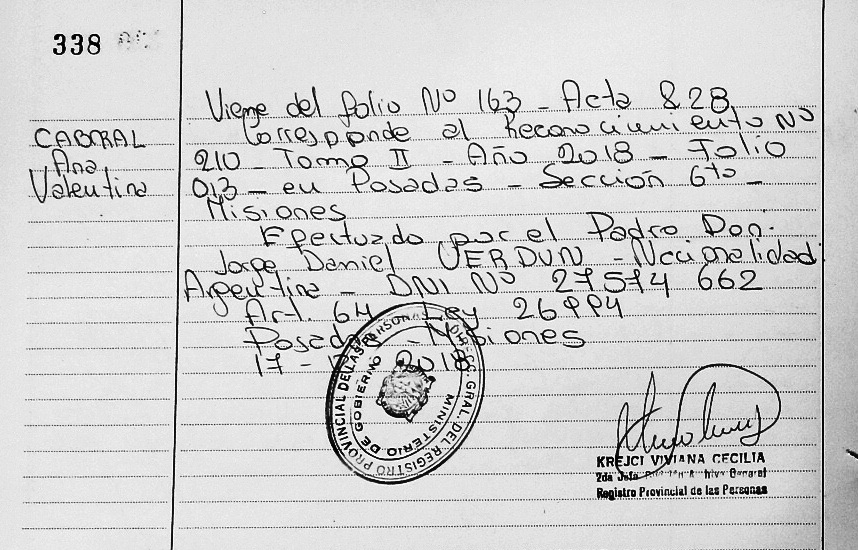 338
CABRAL
Ana
Valentina
Viene del folio Nº 163 - Acta 828
Corresponde al Reconocimiento Nº
210 - Tomo II - Año 2018 - Folio
013 - en Posadas - Sección 6to -
Misiones
Efectuado por el Padre Don.
Jorge Daniel VERDUN - Nacionalidad
Argentina - DNI Nº 27574 662
Art. 64 Ley 26994
Posadas - Misiones
17 - 2018
DIRECC. GRAL. DEL REGISTRO PROVINCIAL DE LAS PERSONAS
MINISTERIO DE GOBIERNO
KREJCI VIVIANA CECILIA
2da Jefa General
Registro Provincial de las Personas